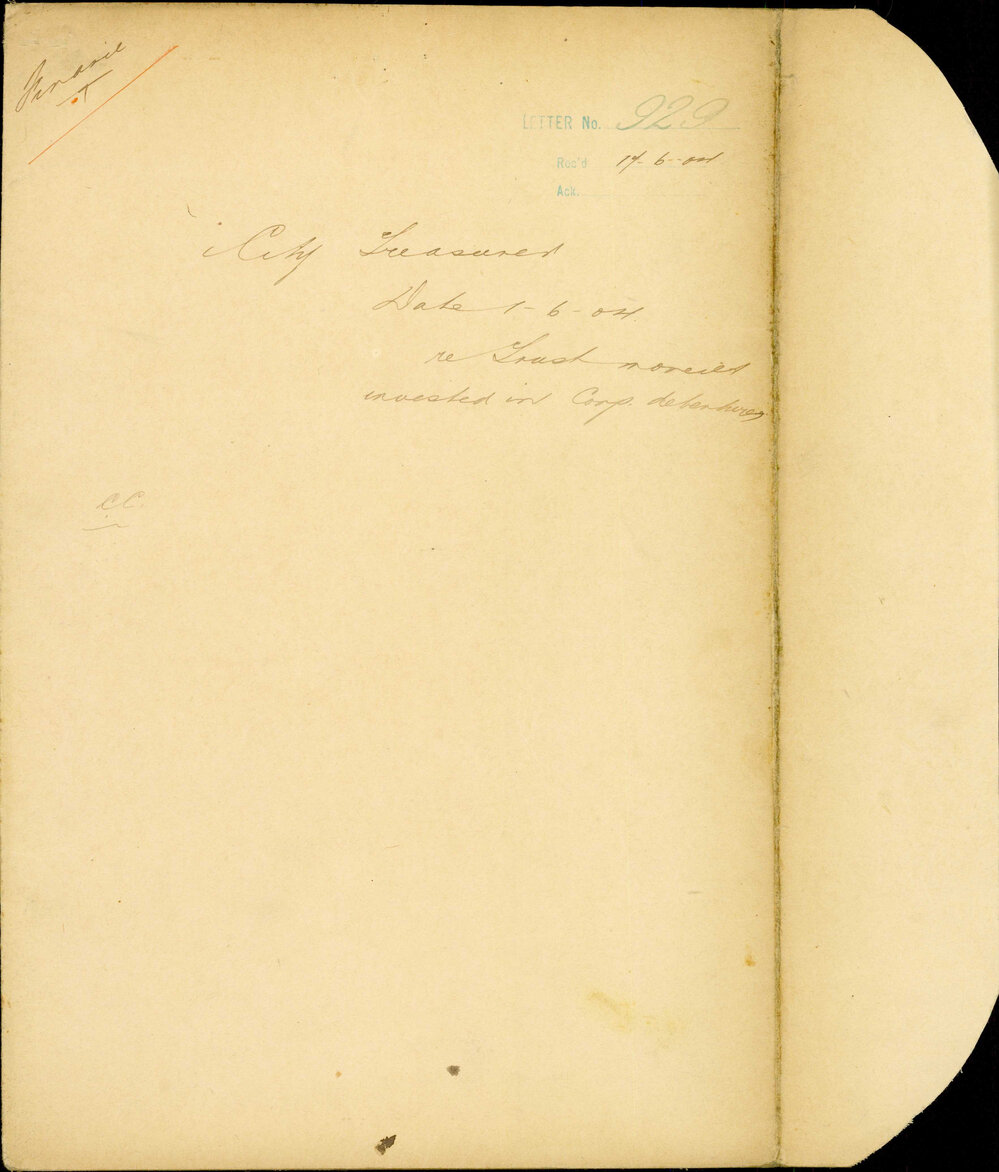 Finance
LETTER No. 929
Rec'd 17-6-04
Ack.
City Treasurer
Date 1-6-04
re Trust moneies
invested in Corp. debentures
C.C.